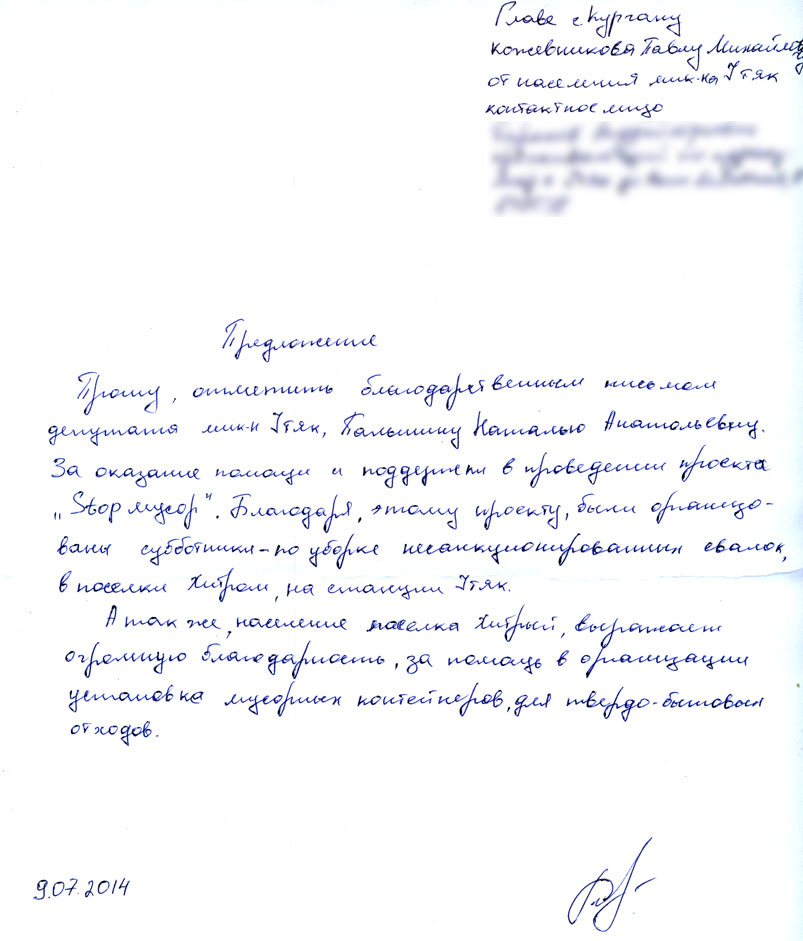 Главе г Кургану
Кожевникова Павлу Михайлов
от населения мик-на Утяк
контактное лицо
Предложение
Прошу, отметить благодарственным письмом
депутата мик-н Утяк, Пальшину Наталью Анатольевну.
За оказание помощи и поддержки в проведении проекта
„Stop мусор". Благодаря, этому проекту, были организо-
ваны субботники-по уборке несанкционированных свалок,
в поселки Хитром, на станции Утяк.
А так же, население поселка Хитрый, выражает
огромную благодарность, за помощь в организации
установка мусорных контейнеров, для твердо-бытовых
отходов.
9.07.2014